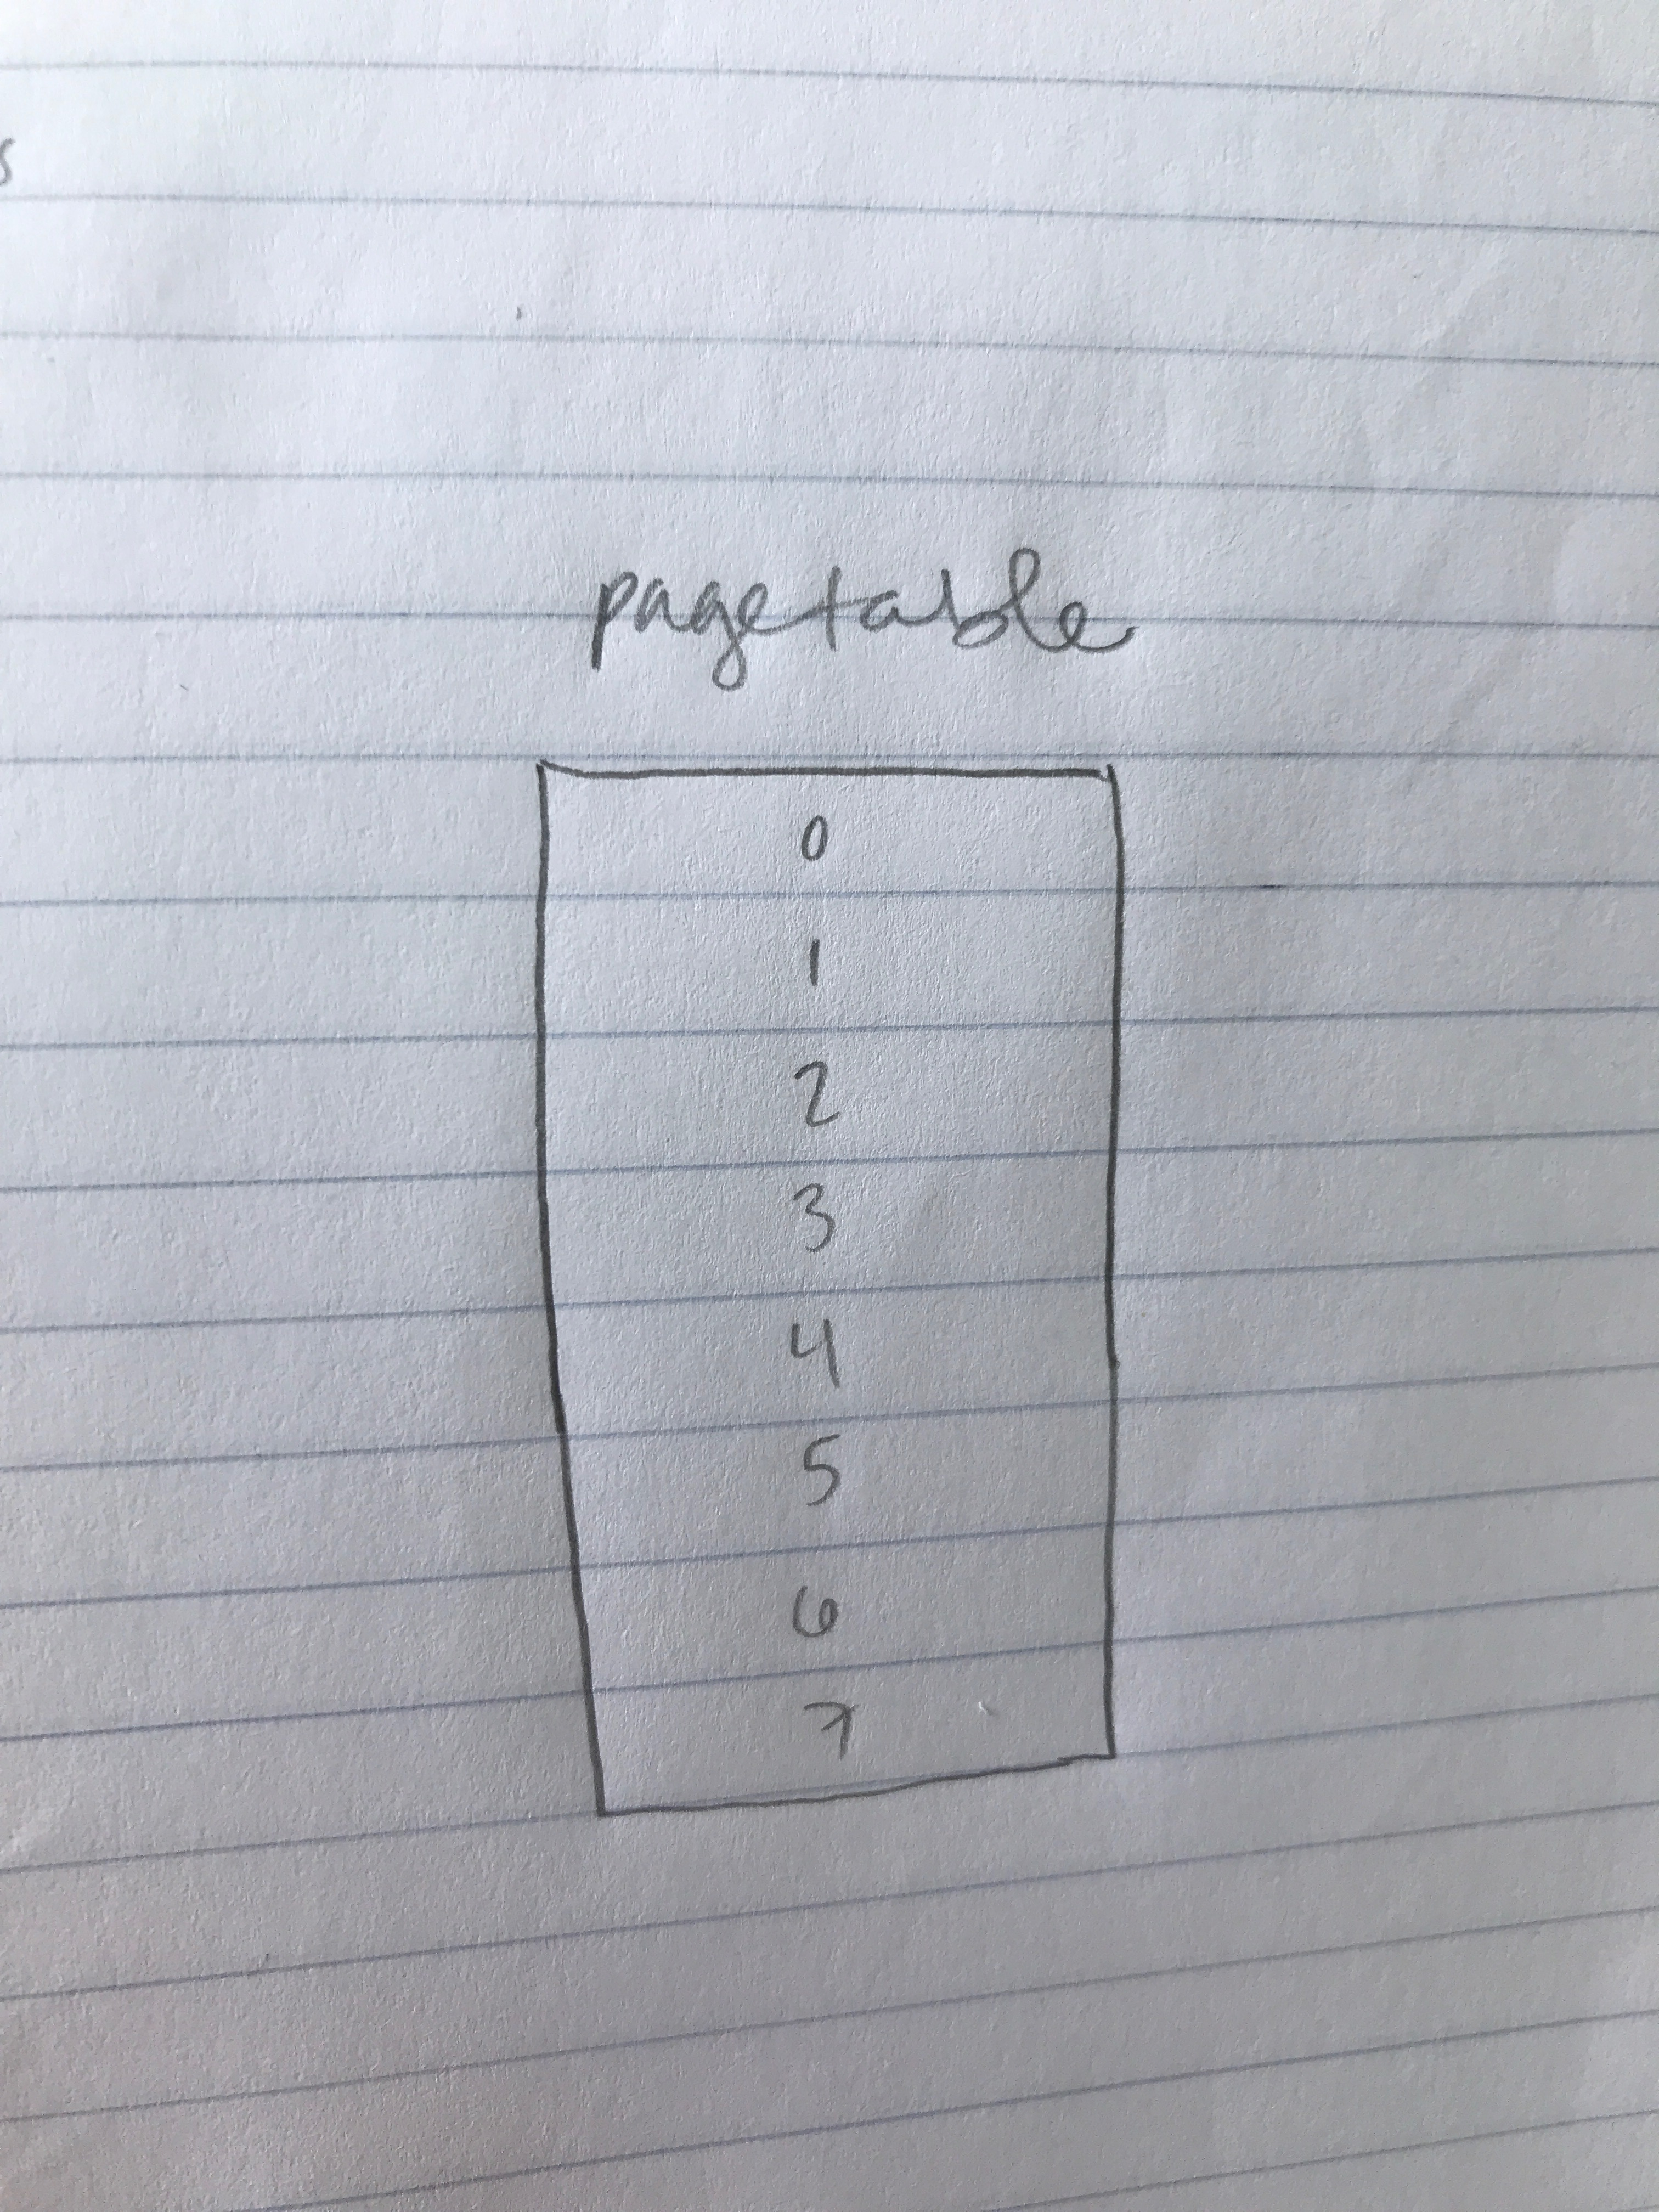 s
pagetable
0
1
2
3
4
5
6
7